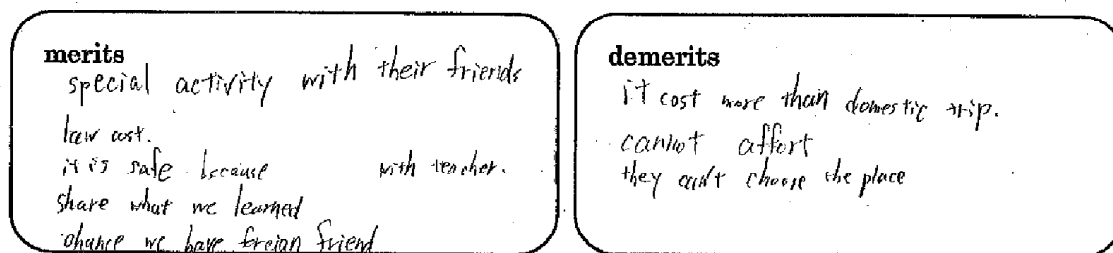 merits
special activity with their friends
low cost.
it is safe because with teacher.
share what we learned
chance we have freign friend
demerits
it cost more than domestic trip.
cannot affort
they can't choose the place